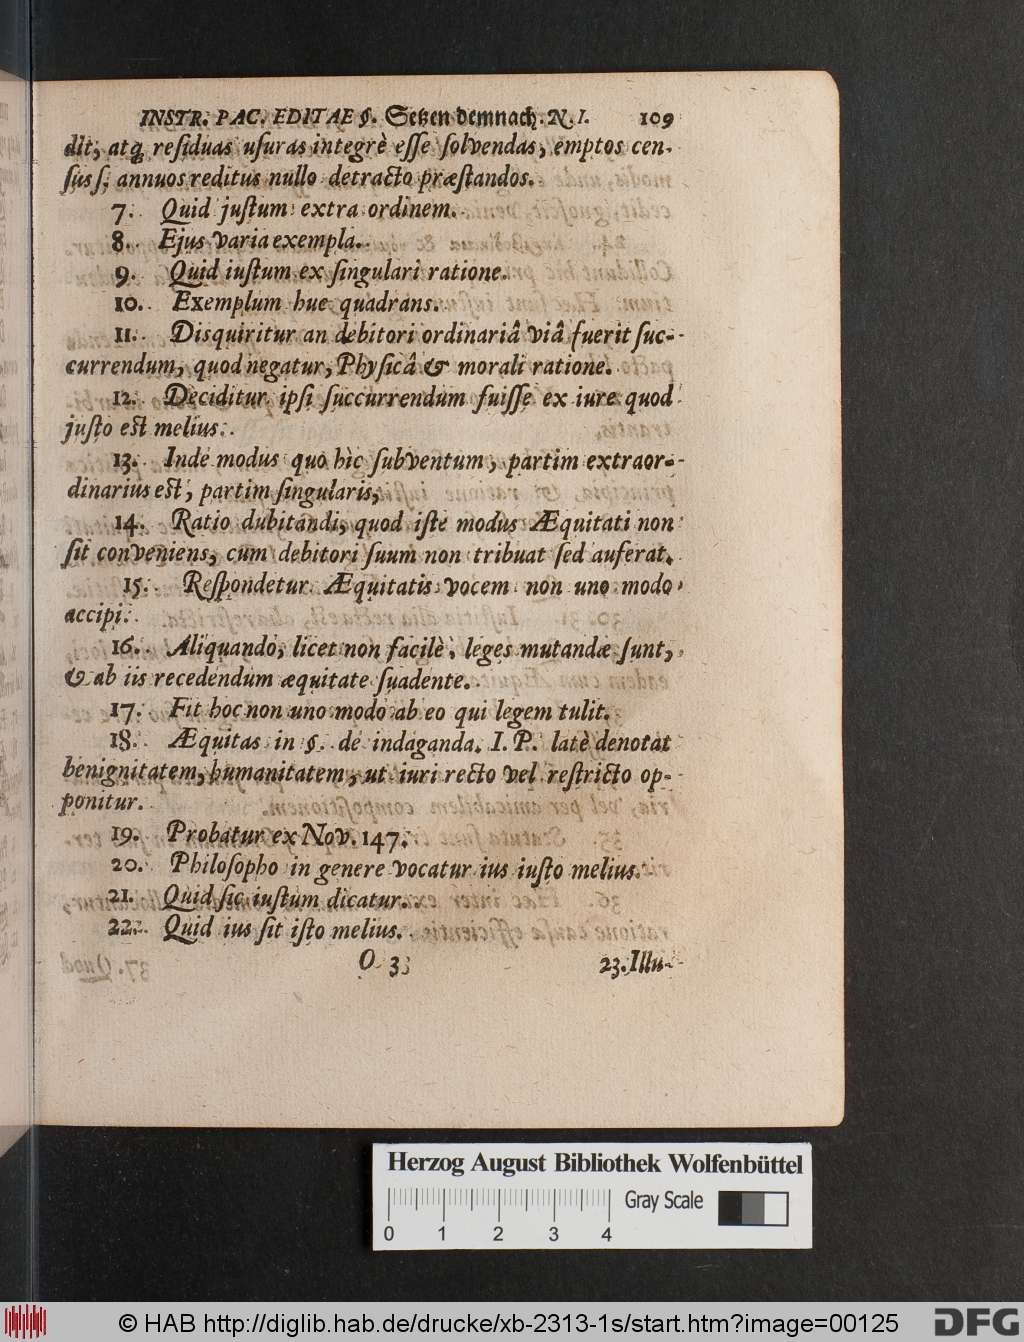 INSTR. PAC. EDITAE §. Setzen demnach. N. I. 109
dit, atq; residuas usuras integrè esse solvendas, emptos cen-
sus s. annuos reditus nullo detracto præstandos.
7. Quid justum extra ordinem.
8. Ejus varia exempla.
9. Quid iustum ex singulari ratione.
10. Exemplum huc quadrans.
11. Disquiritur an debitori ordinariâ viâ fuerit suc-
currendum, quod negatur, Physicâ & morali ratione.
12. Deciditur ipsi succurrendum fuisse ex iure quod
justo est melius.
13. Inde modus quo hic subventum, partim extraor-
dinarius est, partim singularis,
14. Ratio dubitandi, quod iste modus Æquitati non
sit conveniens, cum debitori suum non tribuat sed auferat.
15. Respondetur Æquitatis vocem non uno modo
accipi.
16. Aliquando, licet non facilè, leges mutandæ sunt,
& ab iis recedendum æquitate suadente.
17. Fit hoc non uno modo ab eo qui legem tulit.
18. Æquitas in §. de indaganda. I. P. latè denotat
benignitatem, humanitatem, ut iuri recto vel restricto op-
ponitur.
19. Probatur ex Nov. 147.
20. Philosopho in genere vocatur ius iusto melius.
21. Quid sic iustum dicatur.
22. Quid ius sit isto melius.
O 3 23. Illu-
Herzog August Bibliothek Wolfenbüttel
Gray Scale
0 1 2 3 4
© HAB http://diglib.hab.de/drucke/xb-2313-1s/start.htm?image=00125
DFG